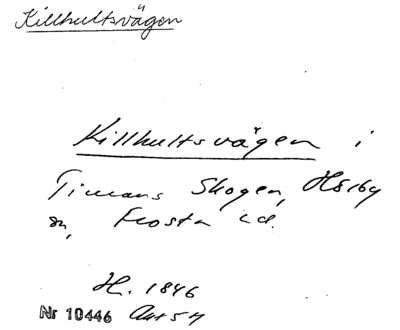 Killhultsvägen
Killhultsvägen i
Timans Skogen, Hörby
sn, Frosta hd.
H. 1846
Nr 10446